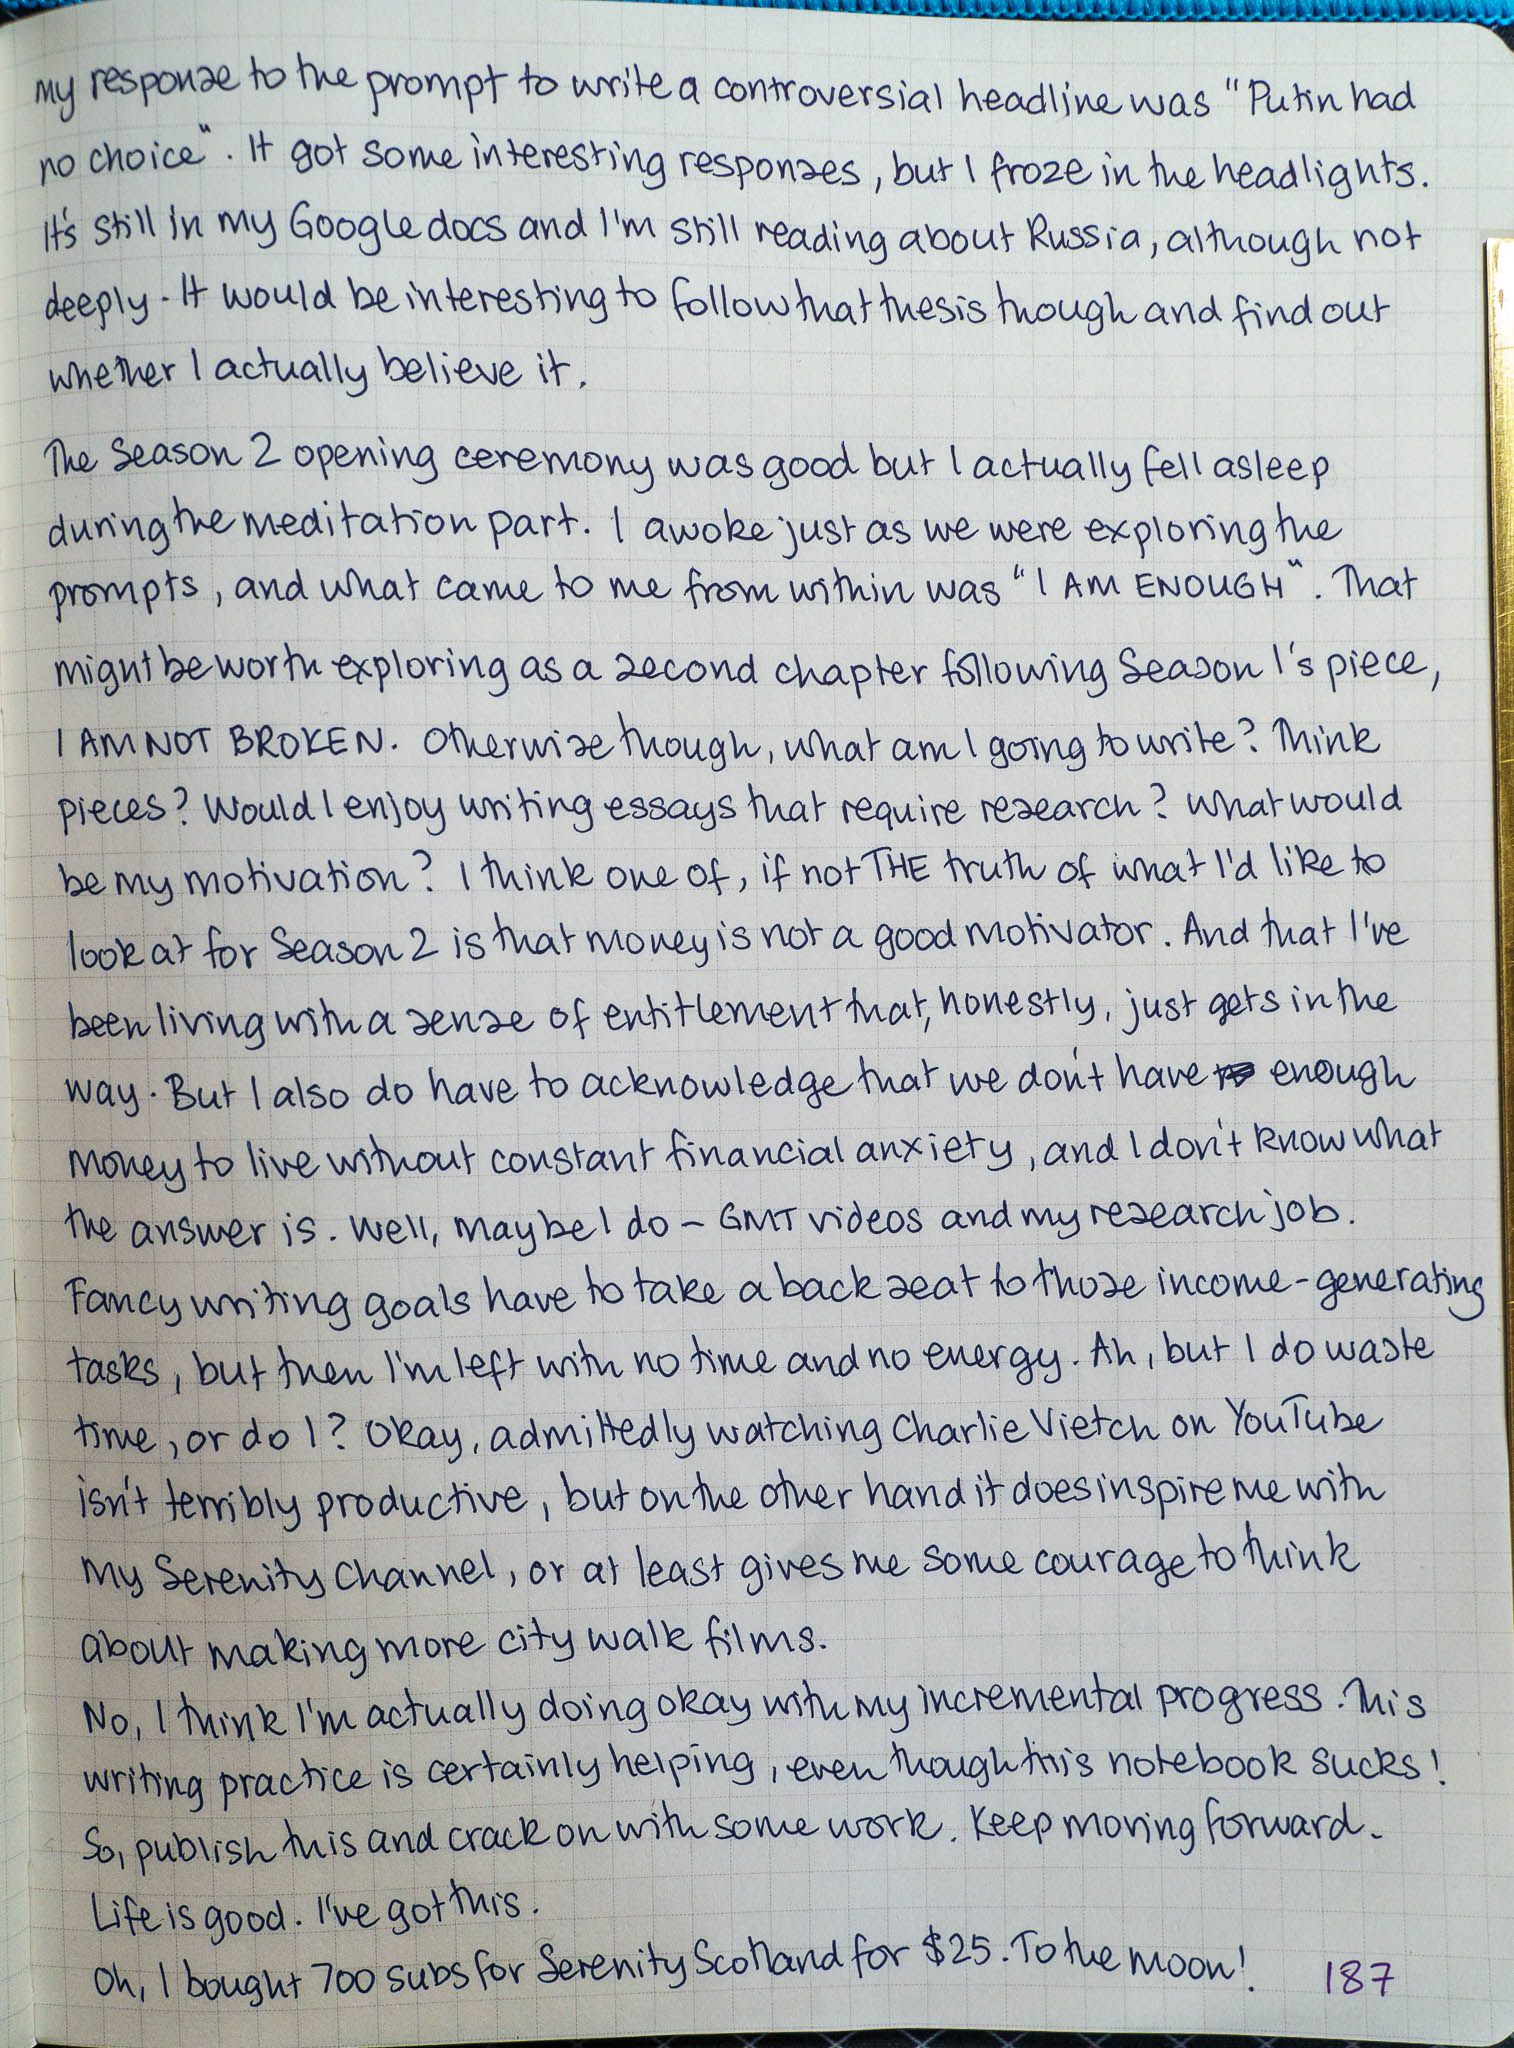 my response to the prompt to write a controversial headline was "Putin had
no choice". It got some interesting responses, but I froze in the headlights.
It's still in my Google docs and I'm still reading about Russia, although not
deeply. It would be interesting to follow that thesis though and find out
whether I actually believe it.
The Season 2 opening ceremony was good but I actually fell asleep
during the meditation part. I awoke just as we were exploring the
prompts, and what came to me from within was "I AM ENOUGH". That
might be worth exploring as a second chapter following Season 1's piece,
I AM NOT BROKEN. Otherwise though, what am I going to write? Think
pieces? Would I enjoy writing essays that require research? What would
be my motivation? I think one of, if not THE truth of what I'd like to
look at for Season 2 is that money is not a good motivator. And that I've
been living with a sense of entitlement that, honestly, just gets in the
way. But I also do have to acknowledge that we don't have enough
money to live without constant financial anxiety, and I don't know what
the answer is. Well, maybe I do – GMT videos and my research job.
Fancy writing goals have to take a back seat to those income-generating
tasks, but then I'm left with no time and no energy. Ah, but I do waste
time, or do I? Okay, admittedly watching Charlie Vietch on YouTube
isn't terribly productive, but on the other hand it does inspire me with
my Serenity Channel, or at least gives me some courage to think
about making more city walk films.
No, I think I'm actually doing okay with my incremental progress. This
writing practice is certainly helping, even though this notebook sucks!
So, publish this and crack on with some work. Keep moving forward.
Life is good. I've got this.
Oh, I bought 700 subs for Serenity Scotland for $25. To the moon!
187